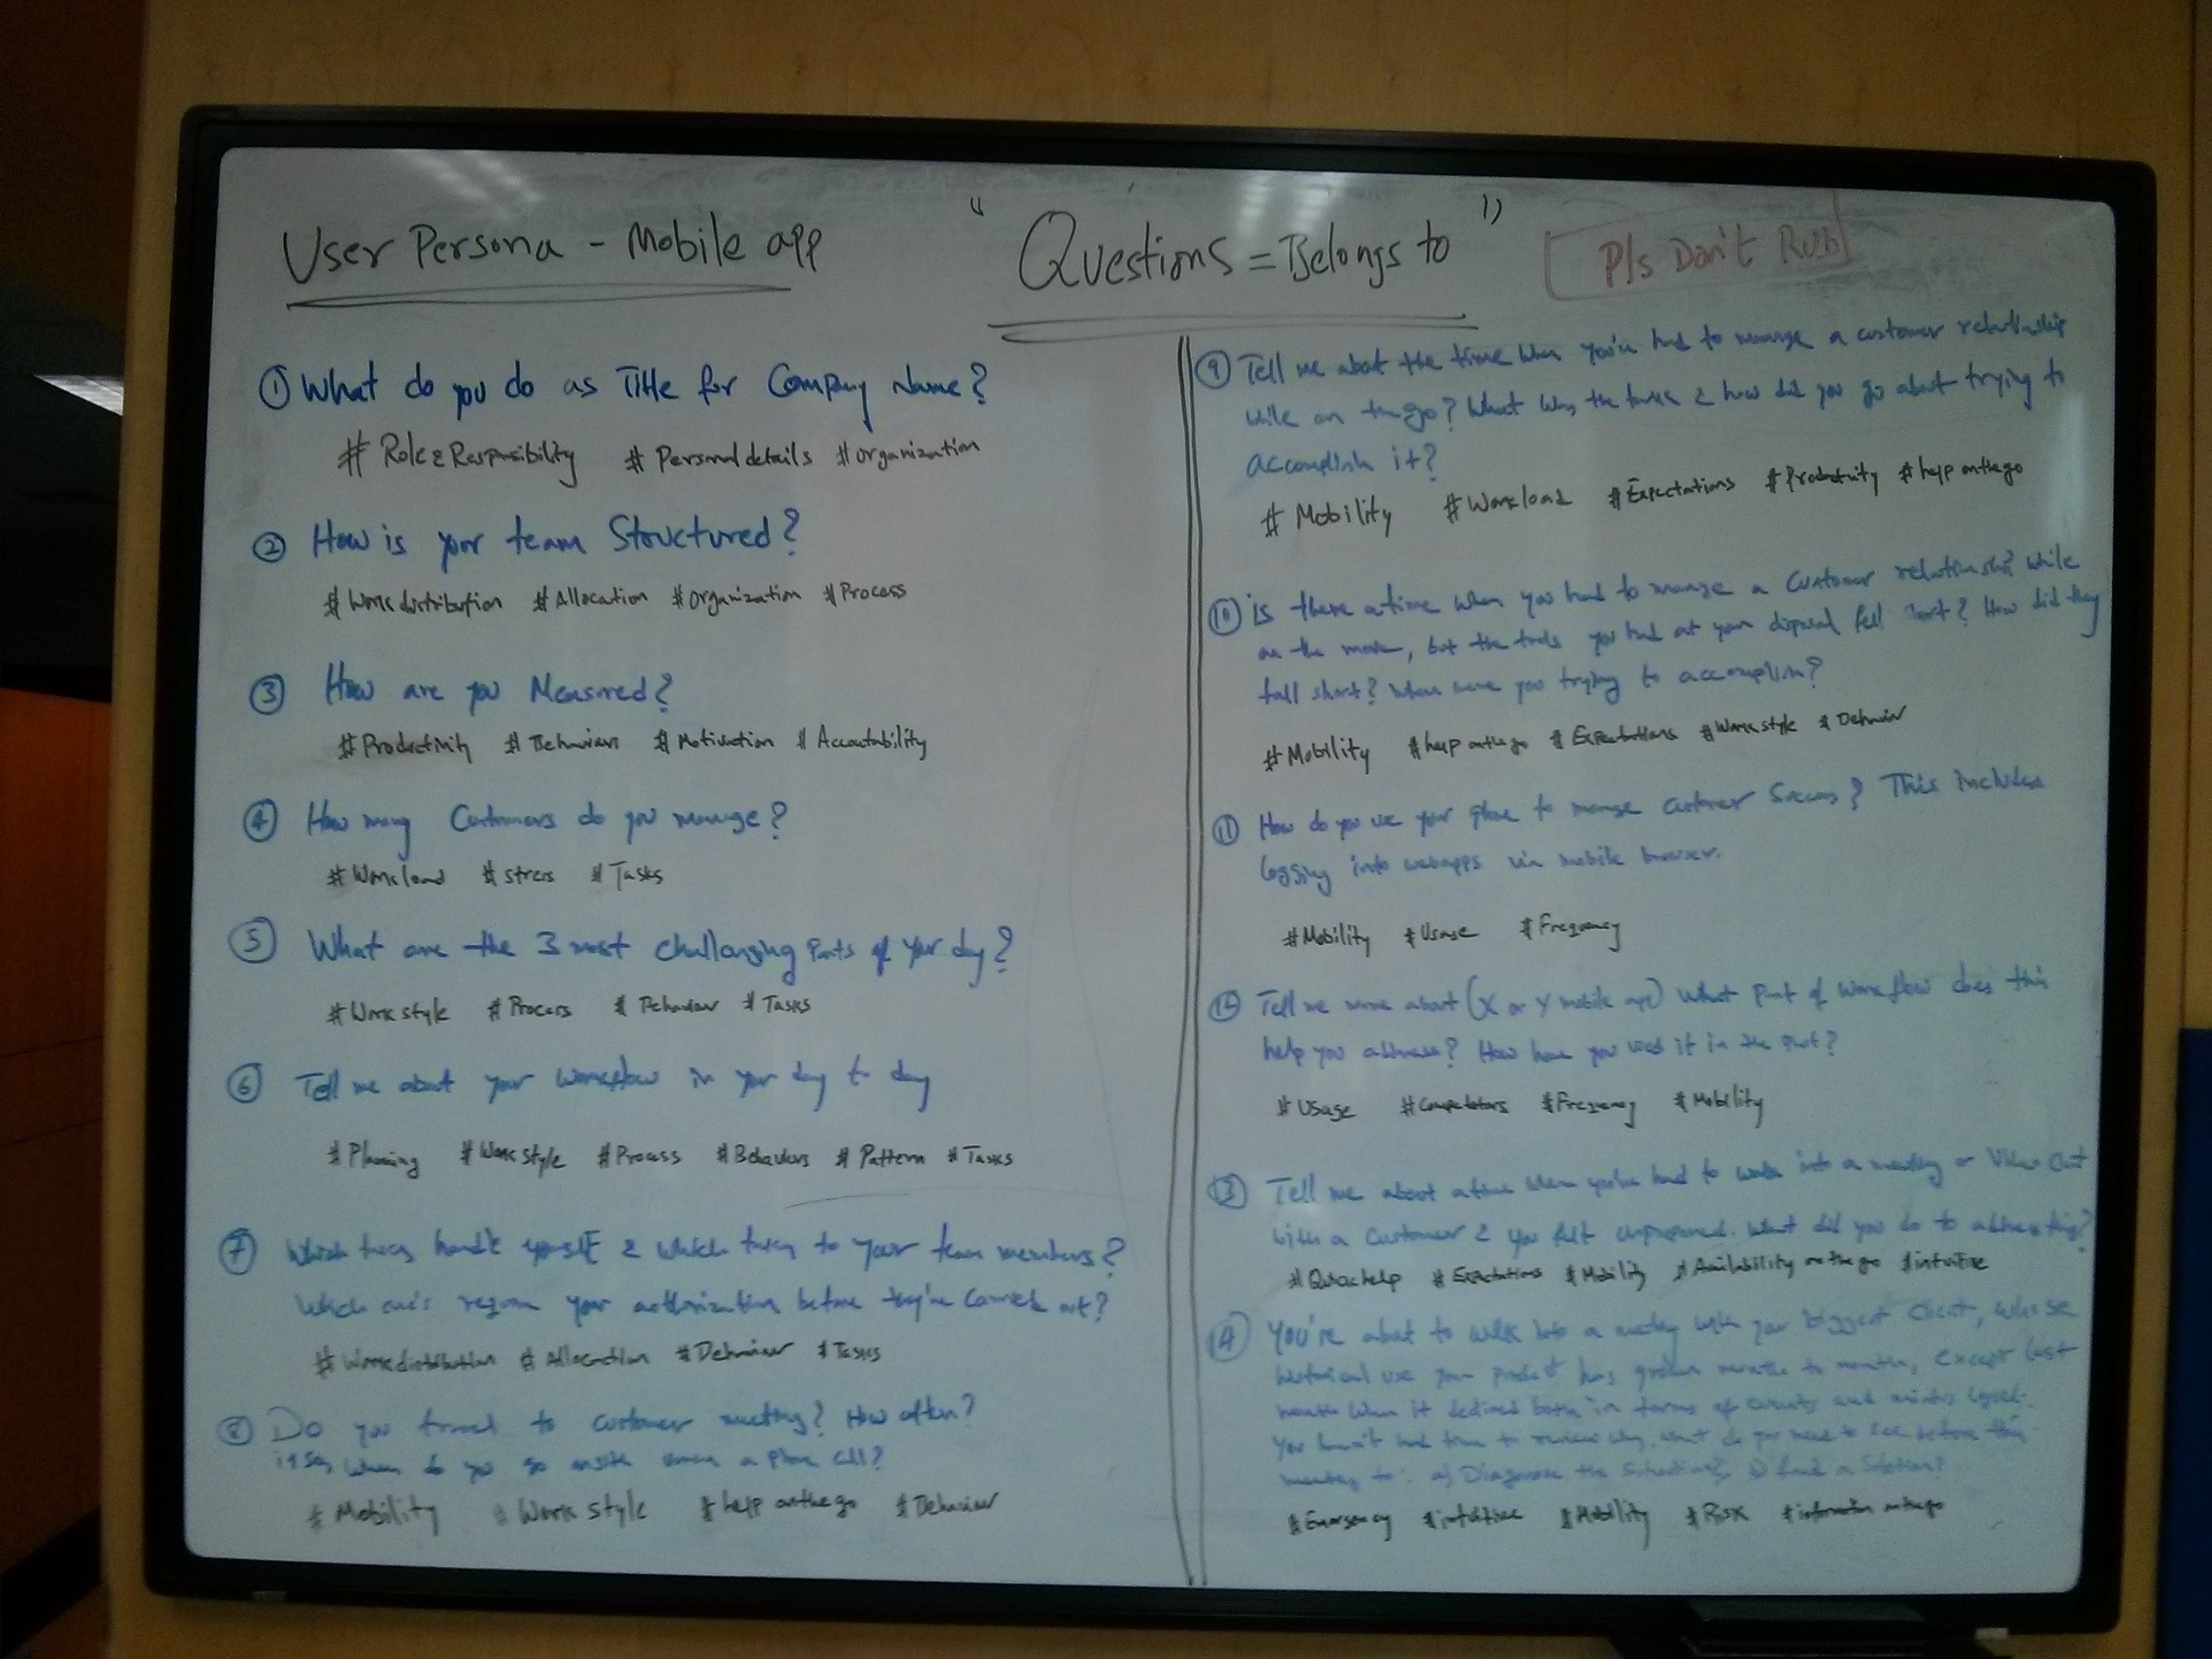 User Persona - Mobile app
" Questions = Belongs to "
Pls Don't Rub
① What do you do as Title for Company Name?
# Role & Responsibility # Personal details # organization
② How is your team Structured?
# Work distribution # Allocation # Organization # Process
③ How are you Measured?
# Productivity # Behaviors # Motivation # Accountability
④ How many Customers do you manage?
# Workload # stress # Tasks
⑤ What are the 3 most challenging Parts of your day?
# Work style # Process # Behaviour # Tasks
⑥ Tell me about your workflow in your day to day
# Planning # Work style # Process # Behaviors # Pattern # Tasks
⑦ Which handle yourself & which to your team members?
Which one's require your authorization before they're carried out?
# Work distribution # Allocation # Behaviour # Tasks
⑧ Do you travel to customer meeting? How often?
when do you go onsite a phone call?
# Mobility # Work style # help on the go # Behaviour
⑨ Tell me about the time when you've had to manage a customer relationship
while on the go? What was the & how did you go about trying to
accomplish it?
# Mobility # Workload # Expectations # Productivity # help on the go
⑩ is there a time when you had to manage a customer relationship while
on the move, but the tools you had at your disposal fell short? How did they
fall short? What were you trying to accomplish?
# Mobility # help on the go # Expectations # Work style # Behavior
⑪ How do you use your phone to manage customer Success? This includes
logging into webapps via mobile browser.
# Mobility # Usage # Frequency
⑫ Tell me more about (X or Y mobile app) What part of workflow does this
help you address? How have you used it in the past?
# Usage # Competitors # Frequency # Mobility
⑬ Tell me about a time when you've had to walk into a meeting or Video Chat
with a customer & you felt unprepared. What did you do to address this?
# Quick help # Expectations # Mobility # Availability on the go # intuitive
⑭ You're about to walk into a meeting with your biggest client, whose
historical use your product has grown month to month, except last
month when it declined both in terms of events and minutes logged.
You haven't had time to review why. What do you need to see before this
meeting to: a) Diagnose the situation & b) find a Solution?
# Emergency # intuitive # Mobility # Risk # information on the go